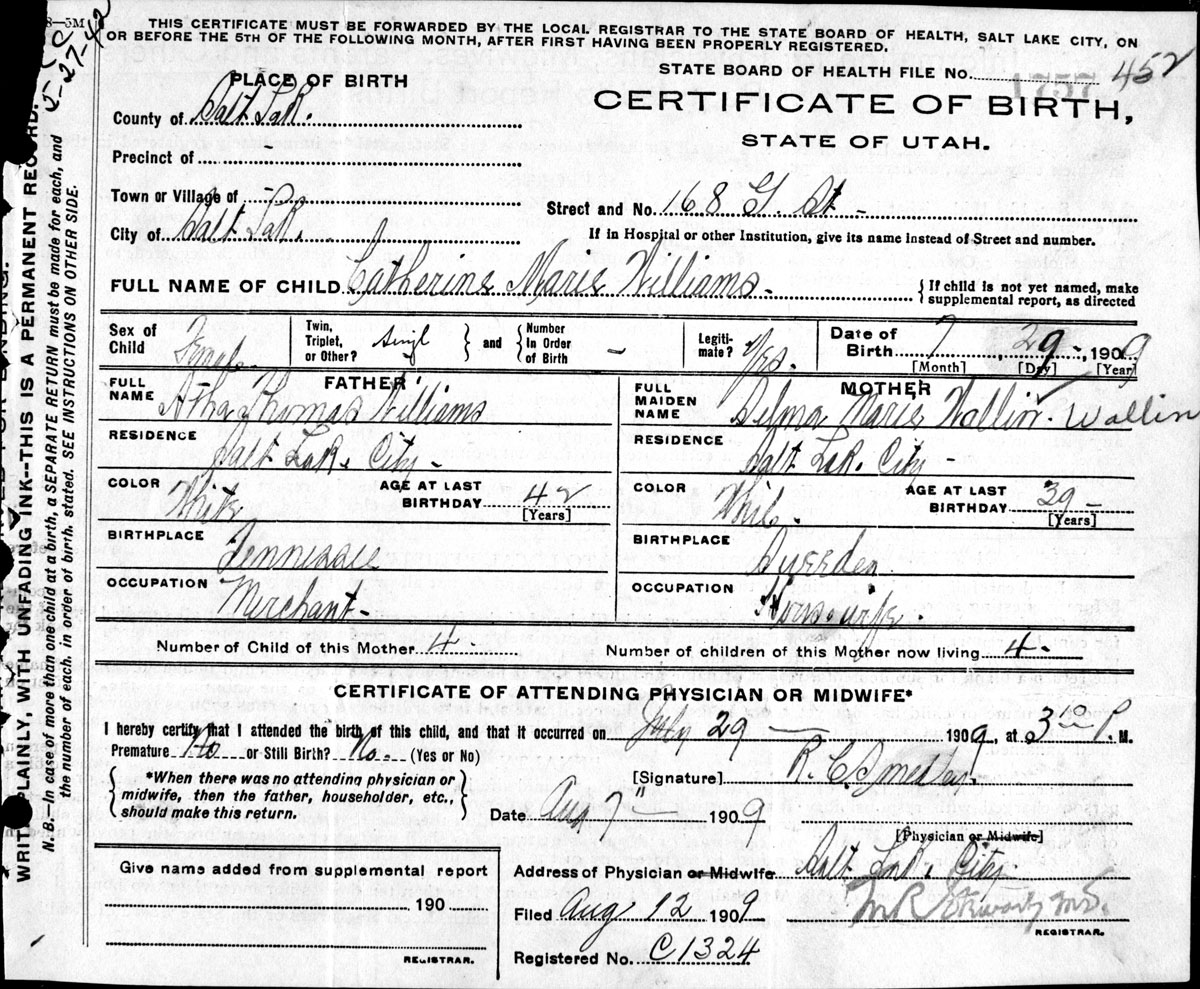 8—3M
THIS CERTIFICATE MUST BE FORWARDED BY THE LOCAL REGISTRAR TO THE STATE BOARD OF HEALTH, SALT LAKE CITY, ON
OR BEFORE THE 5TH OF THE FOLLOWING MONTH, AFTER FIRST HAVING BEEN PROPERLY REGISTERED.
5-27-42
WRITE PLAINLY, WITH UNFADING INK--THIS IS A PERMANENT RECORD.
N. B.—In case of more than one child at a birth, a SEPARATE RETURN must be made for each, and
the number of each, in order of birth, stated. SEE INSTRUCTIONS ON OTHER SIDE.
PLACE OF BIRTH
STATE BOARD OF HEALTH FILE No. 1757 452
CERTIFICATE OF BIRTH,
STATE OF UTAH.
County of Salt Lak.
Precinct of
Town or Village of
Street and No. 168 G. St -
City of Salt Lak.
If in Hospital or other Institution, give its name instead of Street and number.
FULL NAME OF CHILD Catherine Marie Williams.
{ If child is not yet named, make
supplemental report, as directed
Sex of Child Female
Twin, Triplet, or Other? Singl
} and { Number In Order of Birth —
Legiti-mate? Yes.
Date of Birth 7, 29-, 1909
[Month] [Day] [Year]
FATHER
FULL NAME Atha Thomas Williams
RESIDENCE Salt Lake City -
COLOR White
AGE AT LAST BIRTHDAY 42 [Years]
BIRTHPLACE Tennessee
OCCUPATION Merchant-
MOTHER
FULL MAIDEN NAME Selma Marie Wallin - Wallin
RESIDENCE Salt Lak. City -
COLOR Whit.
AGE AT LAST BIRTHDAY 39 - [Years]
BIRTHPLACE Sweeden
OCCUPATION Housewife.
Number of Child of this Mother 4 -
Number of children of this Mother now living 4 -
CERTIFICATE OF ATTENDING PHYSICIAN OR MIDWIFE*
I hereby certify that I attended the birth of this child, and that it occurred on July 29 1909, at 3 10 P. M.
Premature No or Still Birth? No. (Yes or No)
{ *When there was no attending physician or
midwife, then the father, householder, etc.,
should make this return. }
[Signature] R. C. Smedley.
Date Aug 7" 1909
[Physician or Midwife]
Address of Physician or Midwife Salt Lak. City
Give name added from supplemental report
190
REGISTRAR.
Filed Aug 12 1909
M R Stewart M.D.
REGISTRAR.
Registered No. C1324